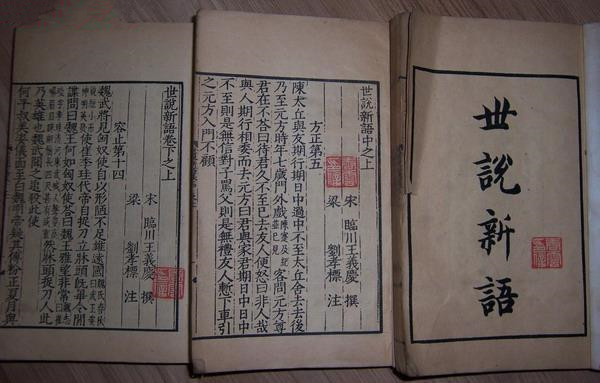 世說新語
世說新語中之上
宋 臨川王義慶 撰
梁 劉孝標 注
方正第五
陳太丘與友期行期日中過中不至太丘舍去去後
乃至元方時年七歲門外戲陳寔及紀並已見客問元方尊
君在不答曰待君久不至已去友人便怒曰非人哉
與人期行相委而去元方曰君與家君期日中日中
不至則是無信對子罵父則是無禮友人慙下車引
之元方入門不顧
世說新語卷下之上
宋 臨川王義慶 撰
梁 劉孝標 注
容止第十四
魏武將見匈奴使自以形陋不足雄遠國魏氏春秋曰武王姿
貌短小而神明英發使崔季珪代帝自捉刀立牀頭旣畢令間
諜問曰魏王何如匈奴使答曰魏王雅望非常魏志曰崔
然牀頭捉刀人此
乃英雄也魏武聞之追殺此使
何平叔美姿儀面至白魏明帝疑其傅粉正夏月與